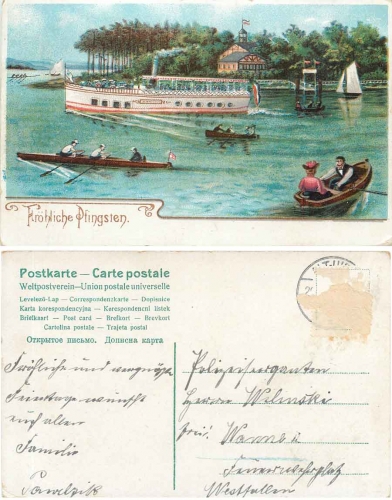 Fröhliche Pfingsten.
Postkarte — Carte postale
Weltpostverein — Union postale universelle
Levelező-Lap — Correspondenzkarte — Dopisnice
Karta korespondencyjna — Korespondenční lístek
Briefkaart — Post card — Brefkort — Brevkort
Cartolina postale — Tarjeta postal
Открытое письмо. Дописна карта
Fröhliche und vergnügte
Feiertage wünscht
euch allen
Familie
Polizeiserganten
Herrn
Wanne
Feuerwehrplatz
Westfallen